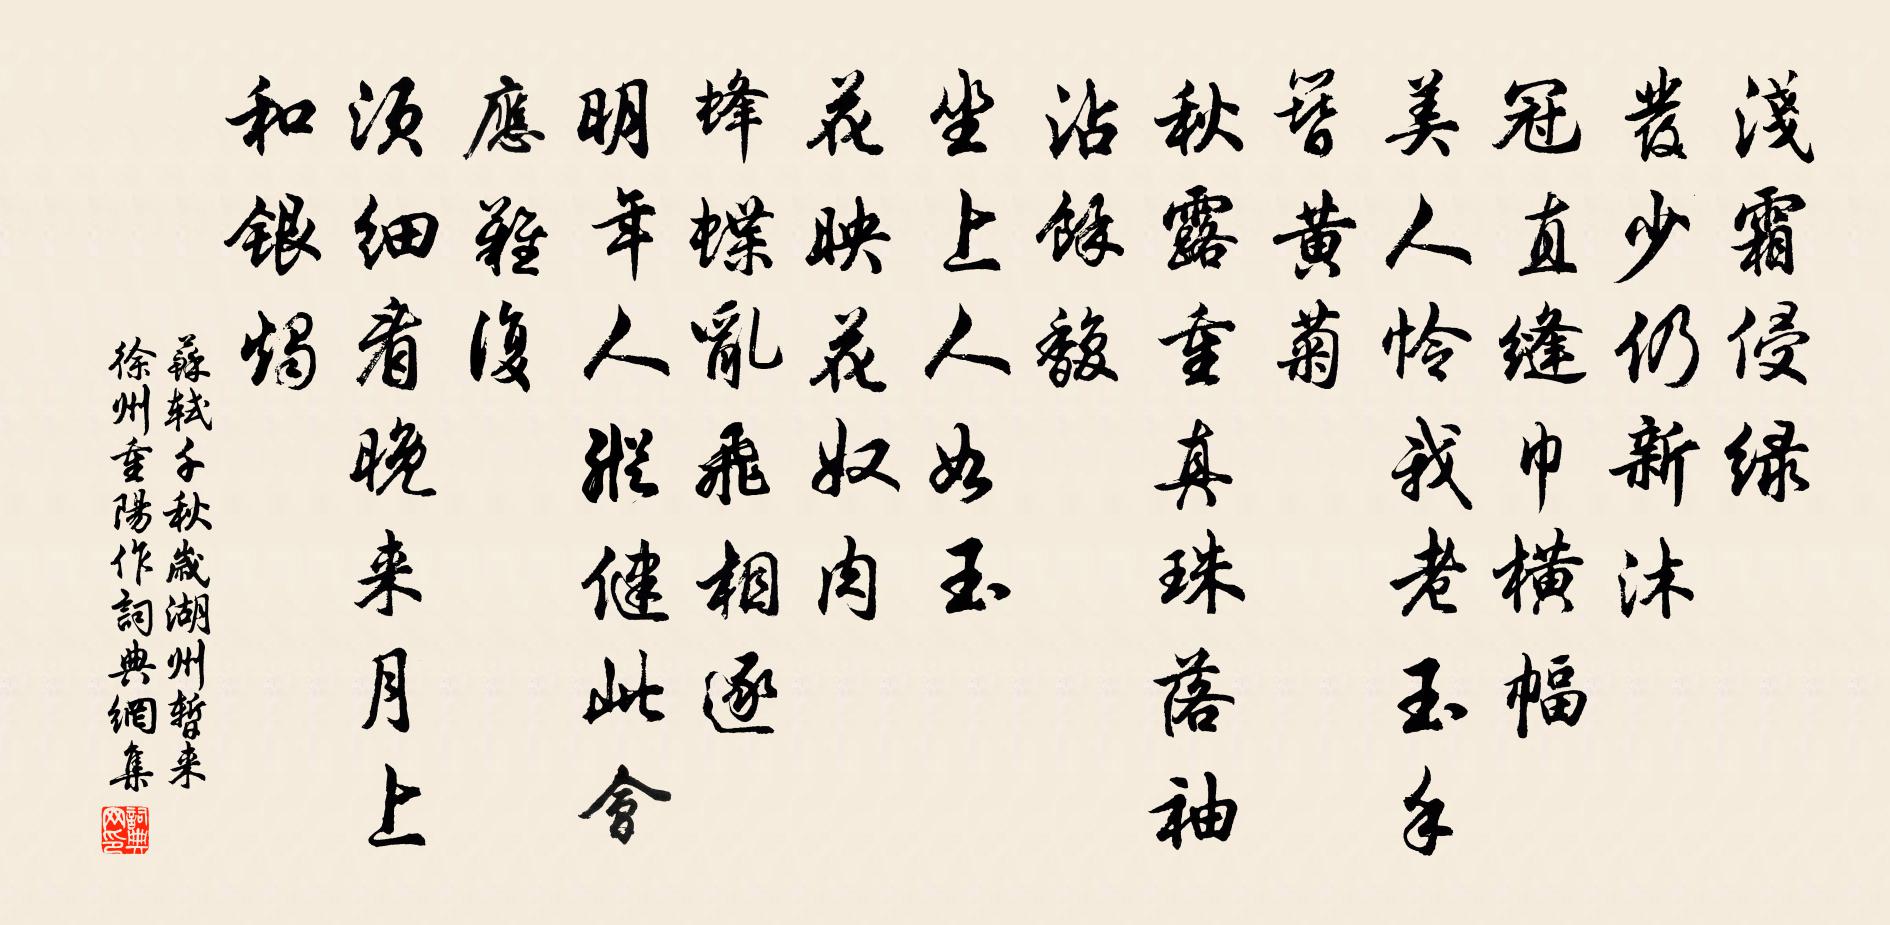 淺霜侵緑
發少仍新沐
冠直縫巾橫幅
美人怜我老玉手
簪黄菊
秋露重真珠落袖
沾餘馥
坐上人如玉
花映花奴肉
蜂蝶亂飛相逐
明年人縱健此會
應難復
須細看晚来月上
和銀燭
蘇軾千秋歲湖州暫来
徐州重陽作詞典網集
詞典
网印